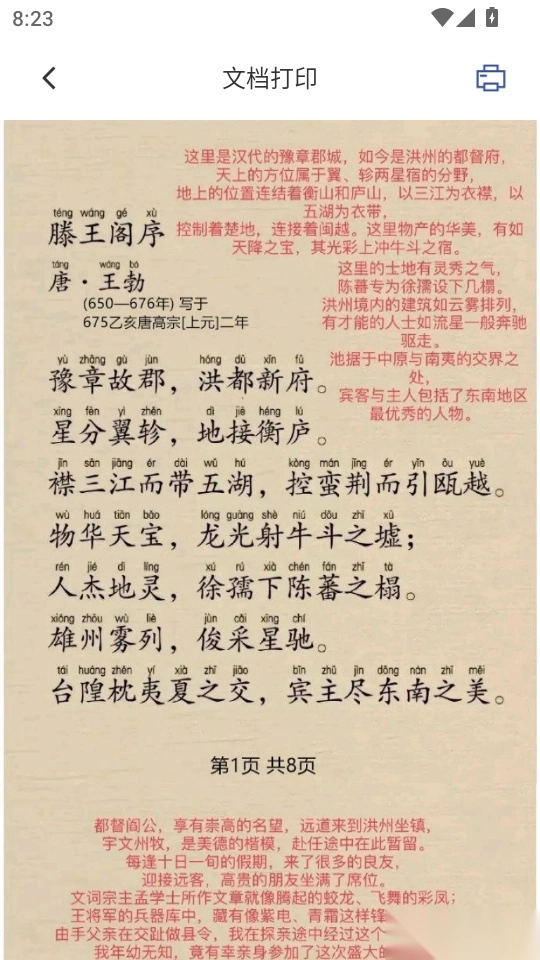 8:23
文档打印
这里是汉代的豫章郡城，如今是洪州的都督府，
天上的方位属于翼、轸两星宿的分野，
地上的位置连结着衡山和庐山，以三江为衣襟，以
五湖为衣带，
控制着楚地，连接着闽越。这里物产的华美，有如
天降之宝，其光彩上冲牛斗之宿。
téng wáng gé xù
滕王阁序
这里的士地有灵秀之气，
陈蕃专为徐孺设下几榻。
táng wáng bó
唐·王勃
洪州境内的建筑如云雾排列，
(650—676年) 写于
有才能的人士如流星一般奔驰
675乙亥唐高宗[上元]二年
驱走。
池据于中原与南夷的交界之
处，
宾客与主人包括了东南地区
最优秀的人物。
yù zhāng gù jùn hóng dū xīn fǔ
豫章故郡，洪都新府。
xīng fēn yì zhěn dì jiē héng lú
星分翼轸，地接衡庐。
jīn sān jiāng ér dài wǔ hú kòng mán jīng ér yǐn ōu yuè
襟三江而带五湖，控蛮荆而引瓯越。
wù huá tiān bǎo lóng guāng shè niú dǒu zhī xū
物华天宝，龙光射牛斗之墟；
rén jié dì líng xú rú xià chén fán zhī tà
人杰地灵，徐孺下陈蕃之榻。
xióng zhōu wù liè jùn cǎi xīng chí
雄州雾列，俊采星驰。
tái huáng zhěn yí xià zhī jiāo bīn zhǔ jìn dōng nán zhī měi
台隍枕夷夏之交，宾主尽东南之美。
第1页 共8页
都督阎公，享有崇高的名望，远道来到洪州坐镇，
宇文州牧，是美德的楷模，赴任途中在此暂留。
每逢十日一旬的假期，来了很多的良友，
迎接远客，高贵的朋友坐满了席位。
文词宗主孟学士所作文章就像腾起的蛟龙、飞舞的彩凤；
王将军的兵器库中，藏有像紫电、青霜这样锋
由手父亲在交趾做县令，我在探亲途中经过这个
我年幼无知，竟有幸亲身参加了这次盛大的